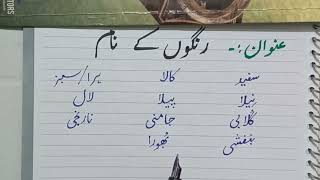 عنوان:- رنگوں کے نام
سفید کالا ہرا/سبز
نیلا پیلا لال
گلابی جامنی نارنجی
بنفشی بھورا